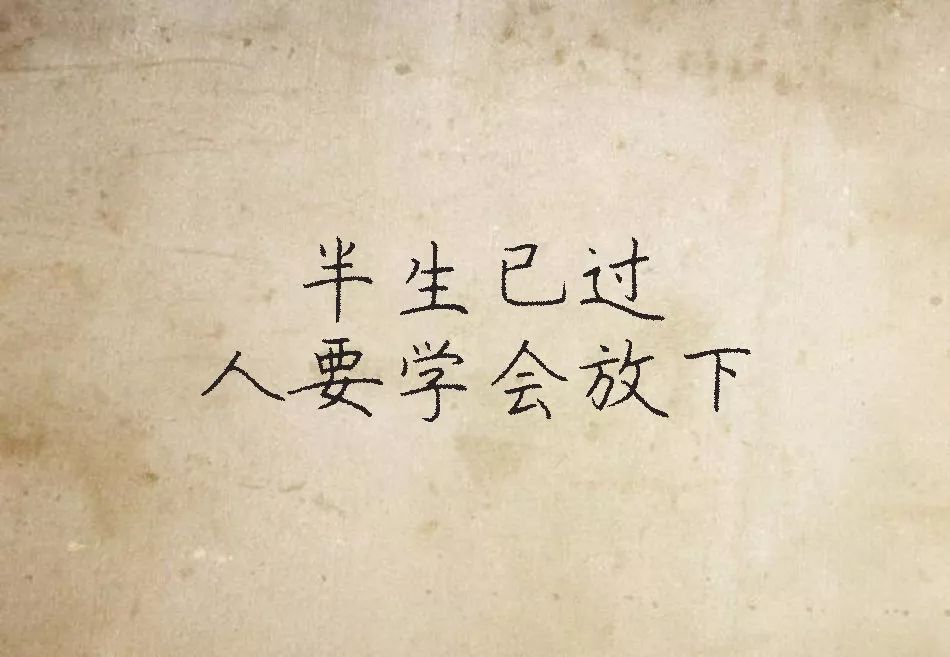 半生已过
人要学会放下